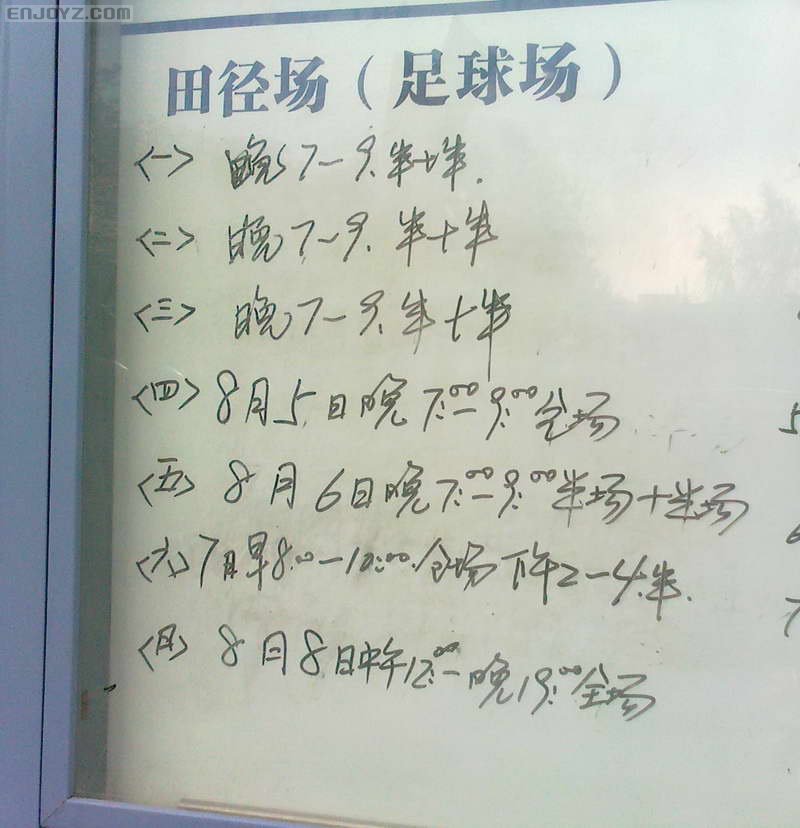 ENJOYZ.COM
田径场（足球场）
<一> 晚7-9.半+半.
<二> 晚7-9.半+半
<三> 晚7-9.半+半
<四> 8月5日晚7:00-9:00全场
<五> 8月6日晚7:00-9:00半场+半场
<六> 7日早8:00-12:00.全场下午2-4.半.
<日> 8月8日中午12:00-晚19:00全场
5
7